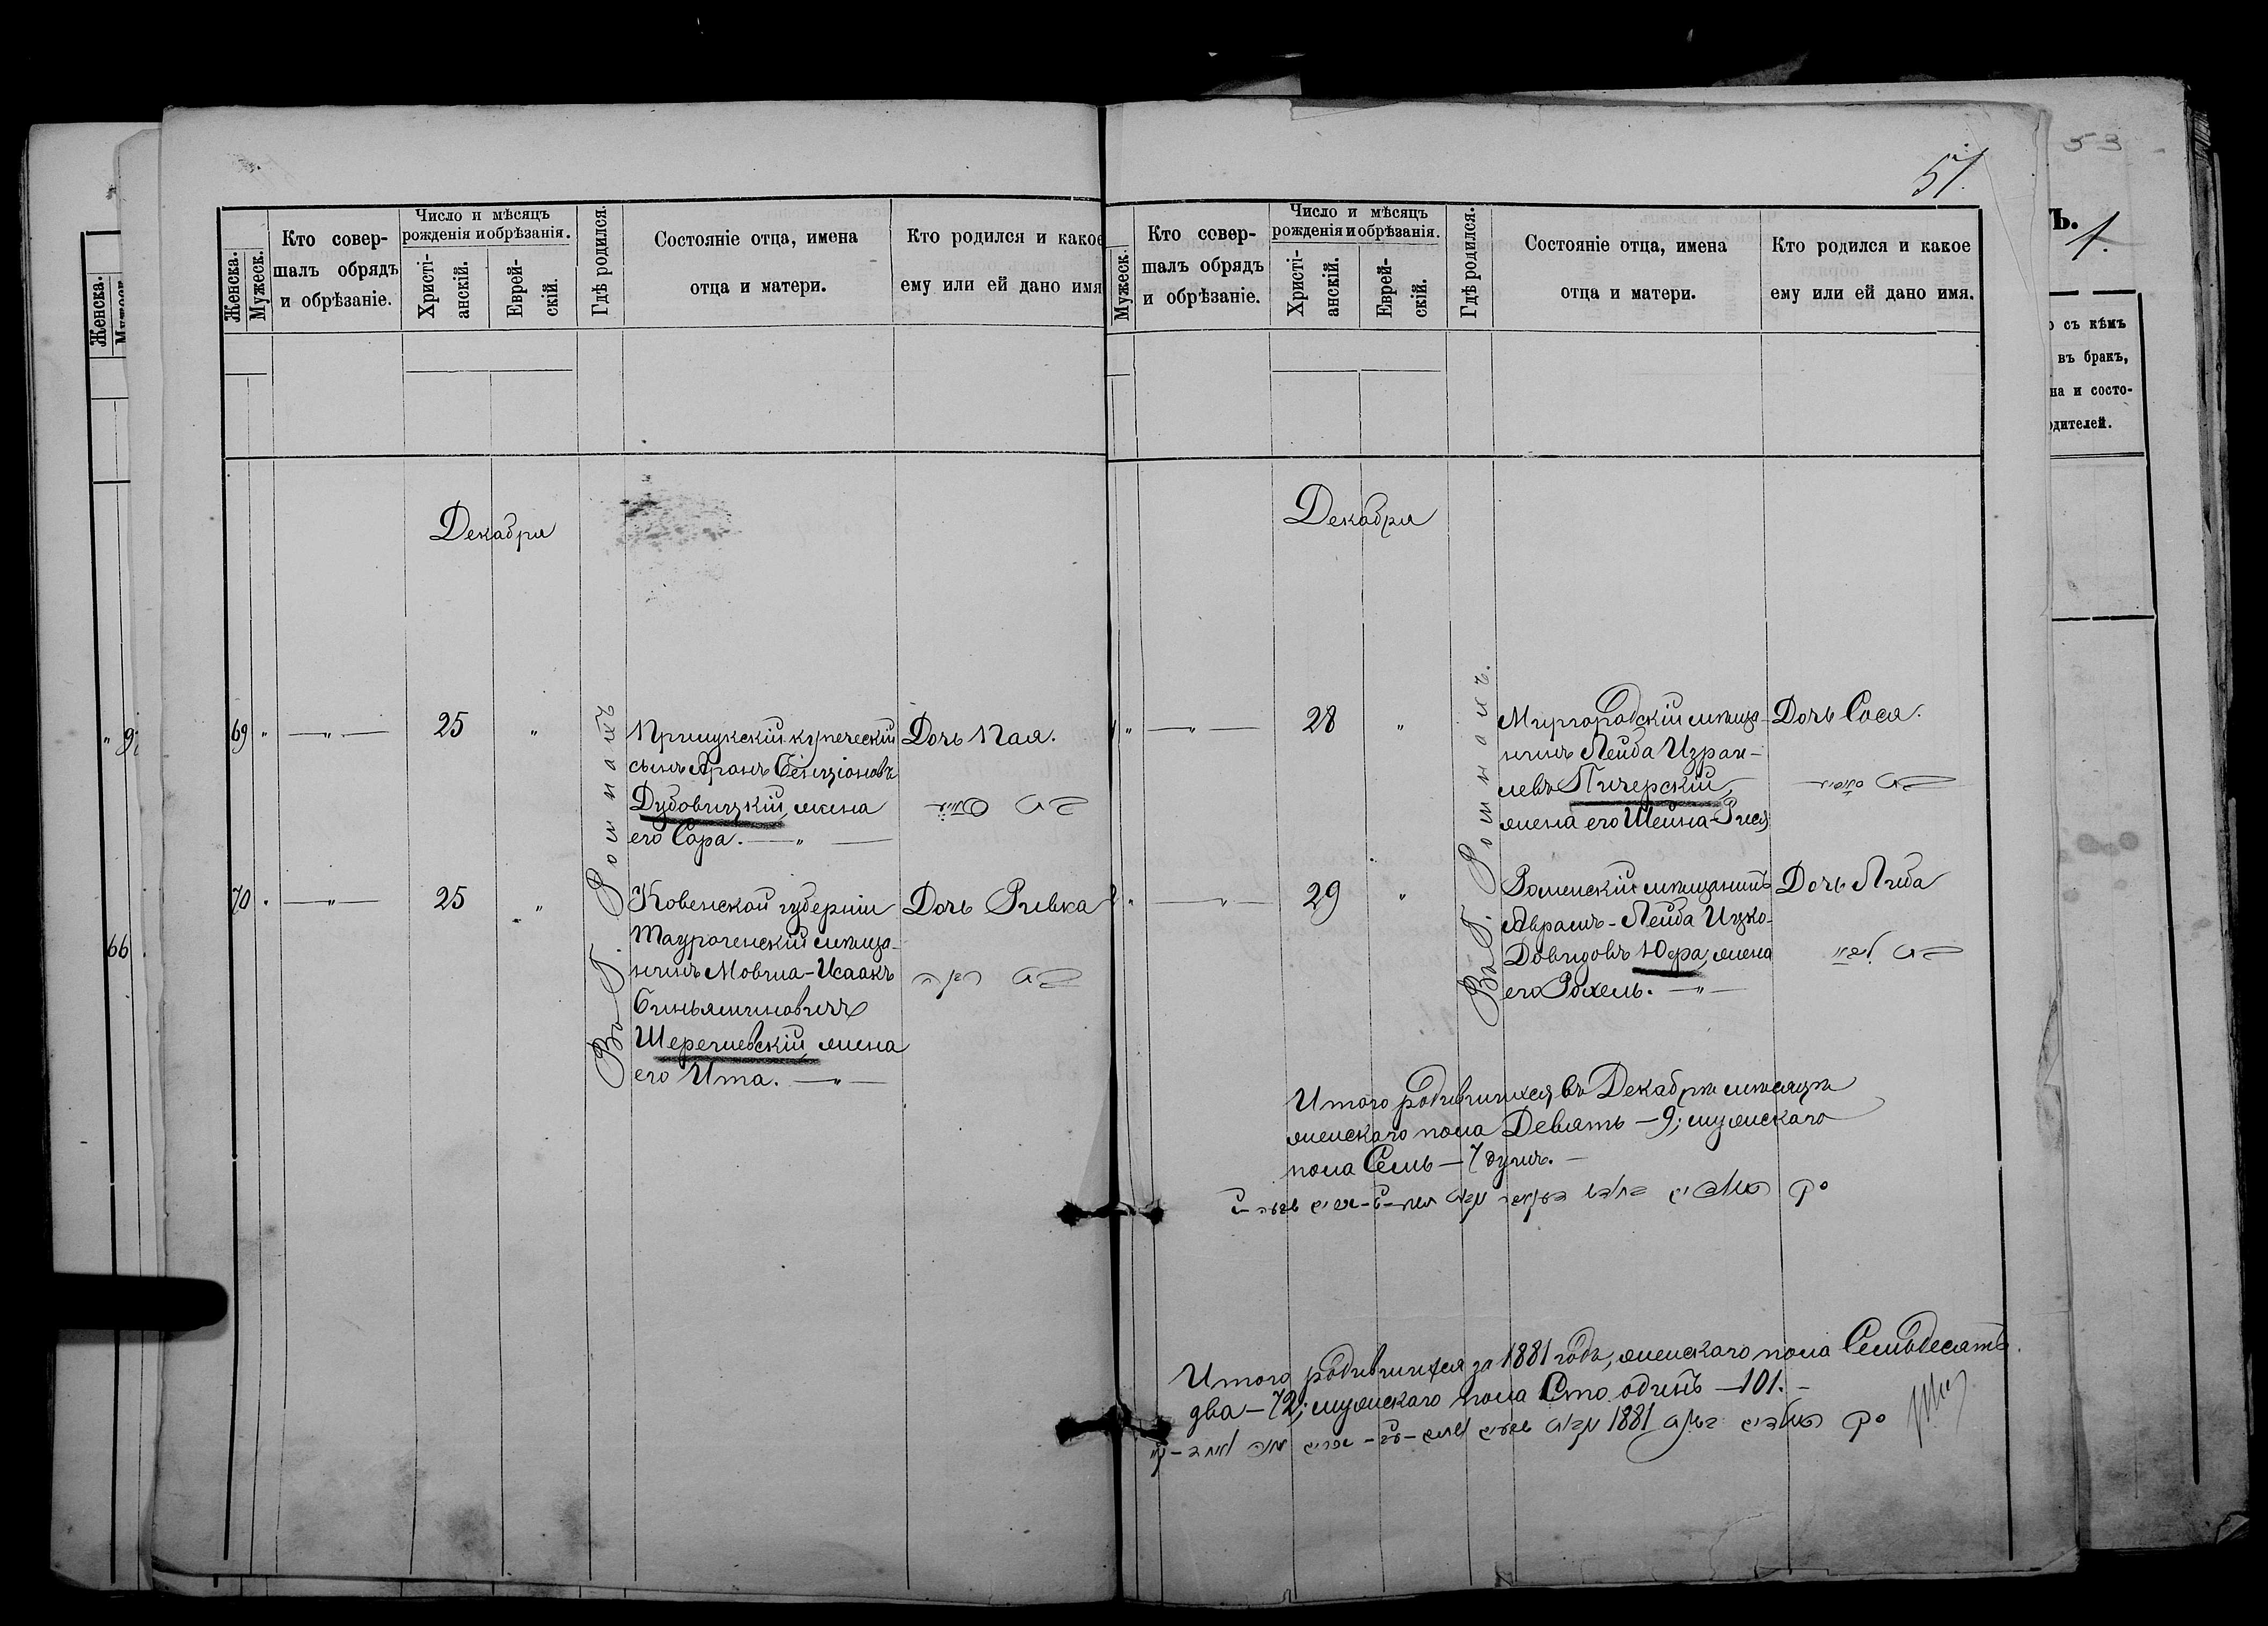 Женска.
Мужеск.
Кто совер-
шалъ обрядъ
и обрѣзаніе.
Число и мѣсяцъ
рожденія и обрѣзанія.
Христі-
анскій.
Еврей-
скій.
Гдѣ родился.
Состояніе отца, имена
отца и матери.
Кто родился и какое
ему или ей дано имя
Декабря
Въ Г. Ромнахъ
69 " —"— 25 "
Прилукскій купеческій
сынъ Аронъ Бенціоновъ
Дубовицкій, жена
его Сара. —"—
Дочь Пая.
70 " —"— 25 "
Ковенской губерніи
Таурогенскій мѣща-
нинъ Мовша-Исаакъ
Биньяминовичъ
Шерешевскій, жена
его Ита. —"—
Дочь Ривка
66
51.
Мужеск.
Кто совер-
шалъ обрядъ
и обрѣзаніе.
Число и мѣсяцъ
рожденія и обрѣзанія.
Христі-
анскій.
Еврей-
скій.
Гдѣ родился.
Состояніе отца, имена
отца и матери.
Кто родился и какое
ему или ей дано имя.
Декабря
Въ Г. Ромнахъ.
" —"— 28 "
Миргородскій мѣща-
нинъ Лейба Израи-
левъ Пичерскій,
жена его Шейна-Рися
Дочь Сося.
" —"— 29 "
Роменскій мѣщанинъ
Абрамъ-Лейба Ицко-
Довидовъ Юфа, жена
его Рохель. —"—
Дочь Либа
Итого родившихся въ Декабрѣ мѣсяцѣ
женскаго пола Девять — 9; мужскаго
пола Семь — 7 душъ. —
Итого родившихся за 1881 годъ, женскаго пола Семьдесятъ
два — 72; мужскаго пола Сто одинъ — 101. —
53
1.
съ кѣмъ
въ бракъ,
на и состо-
одителей.